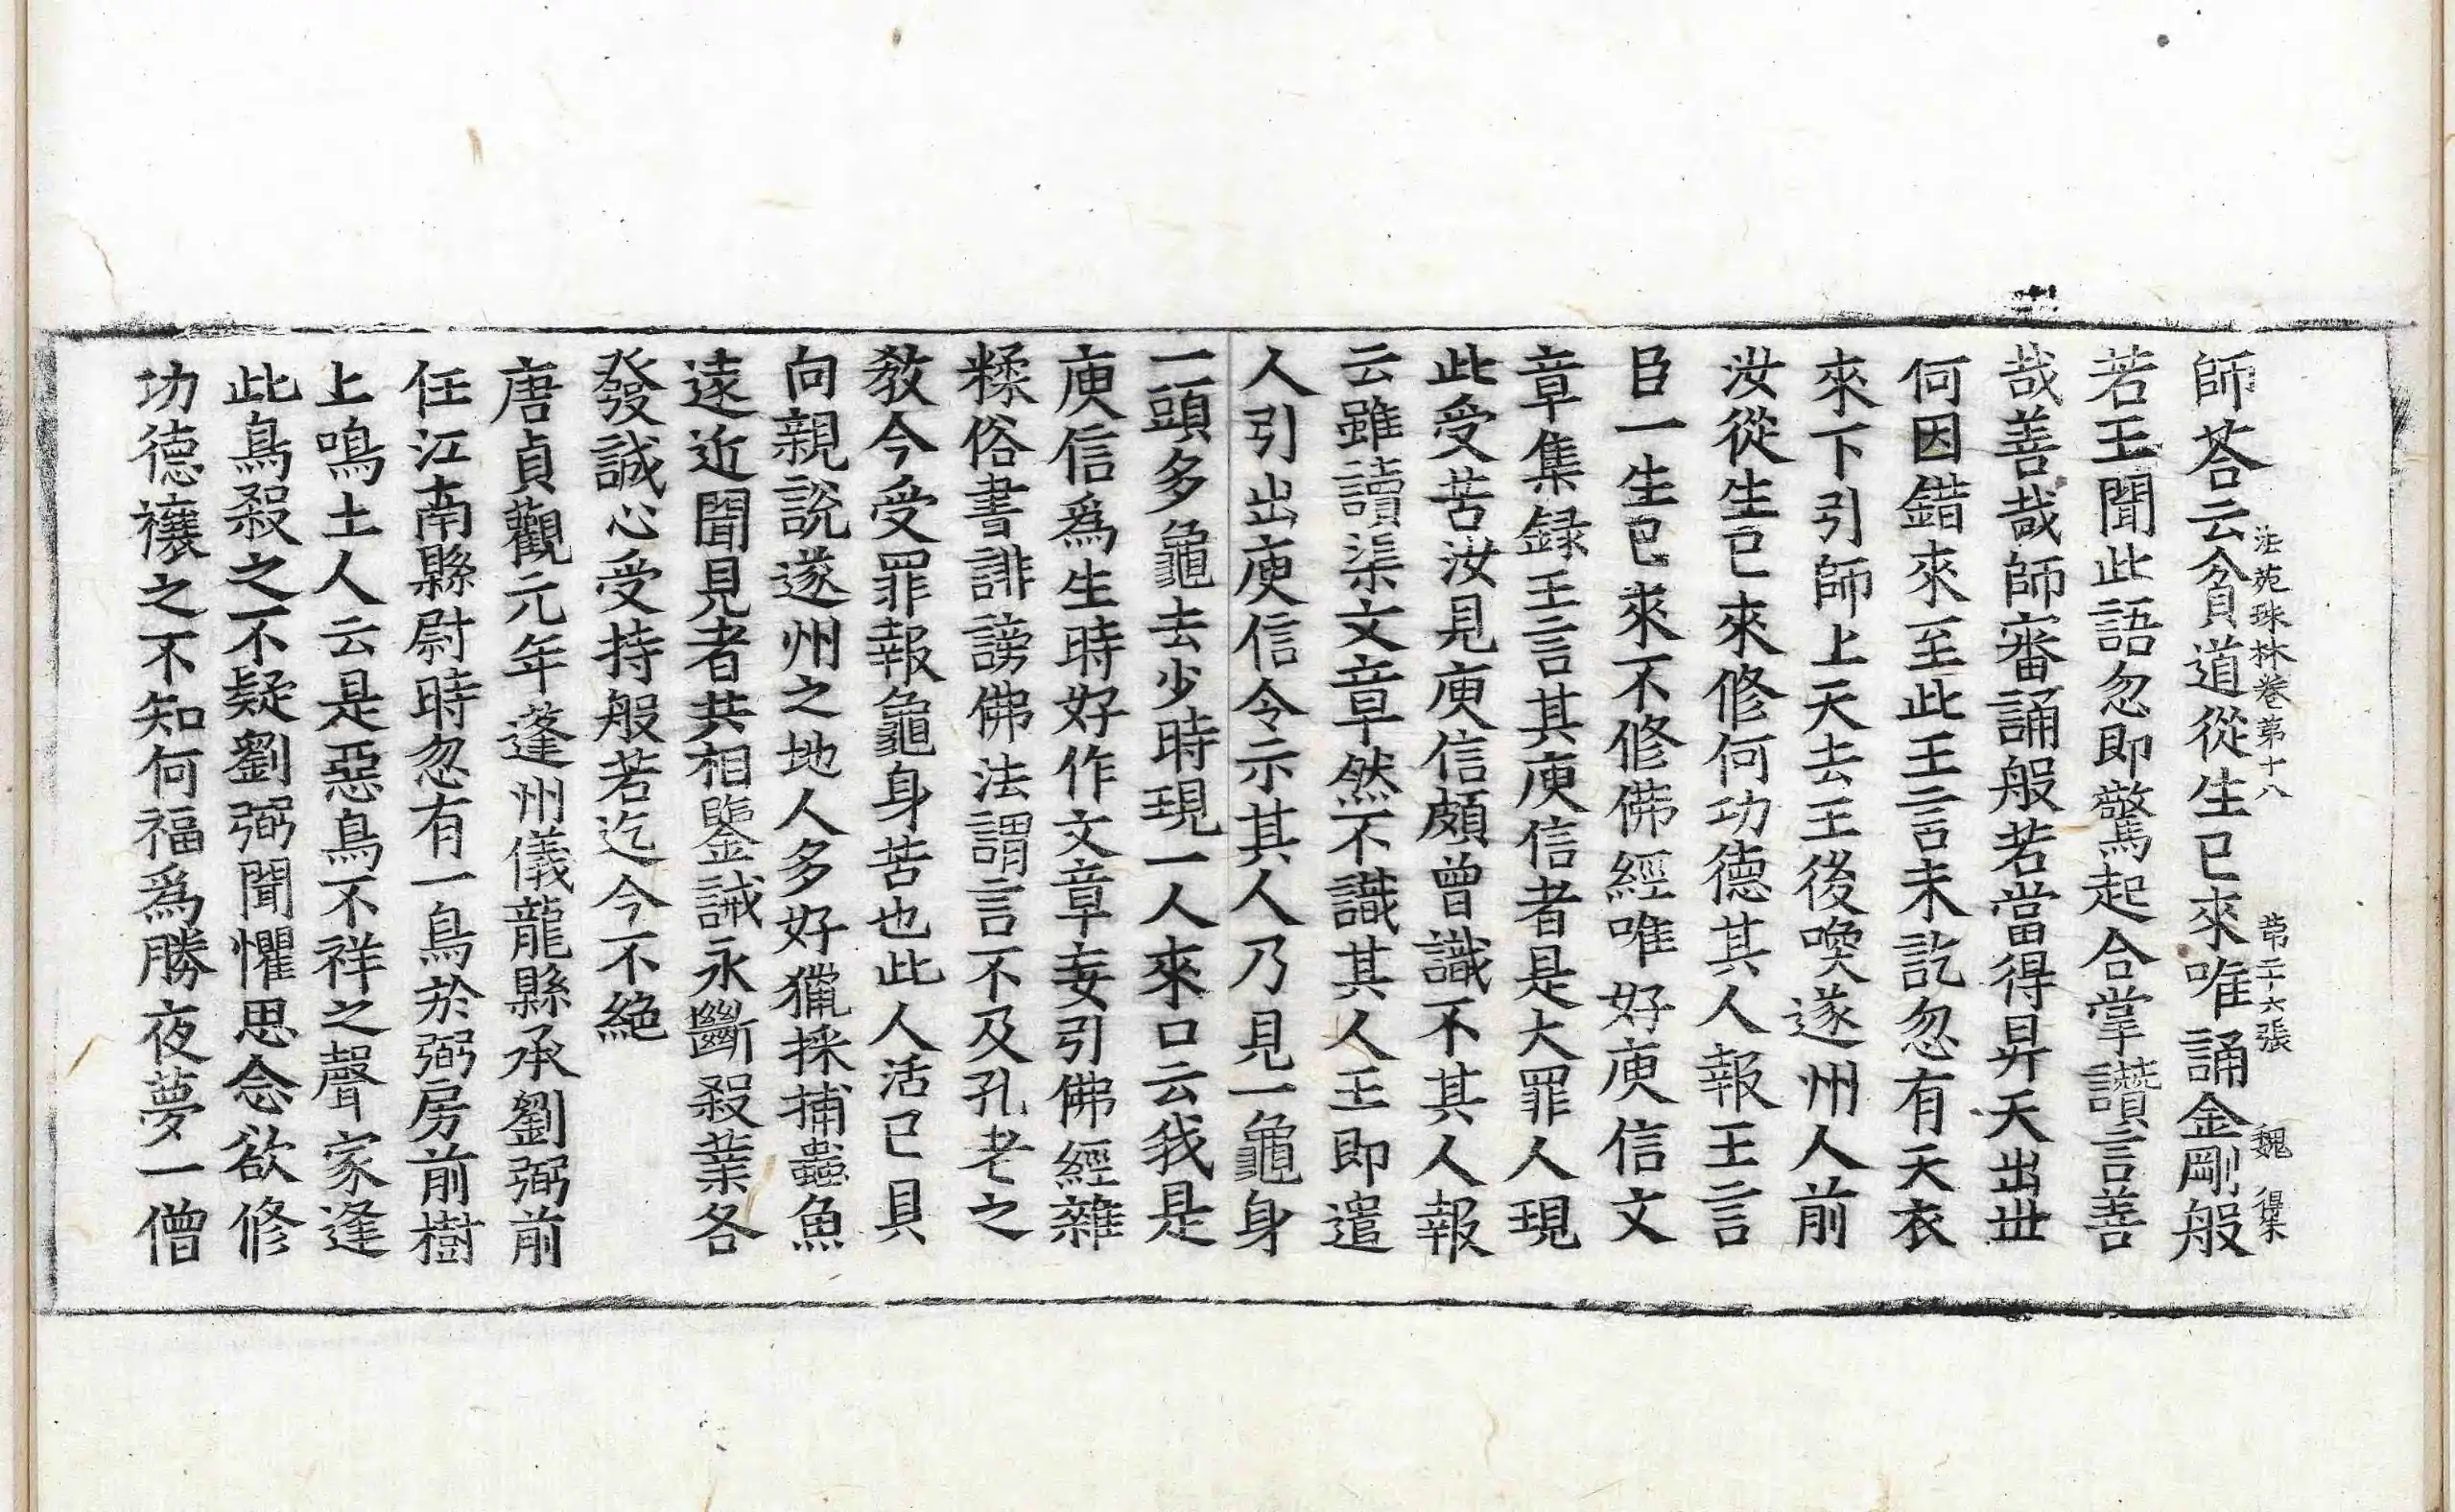 法苑珠林卷第十八　第二十六張　魏　得朱
師荅云貧道從生已來唯誦金剛般
若王聞此語忽即驚起合掌讃言善
哉善哉師審誦般若當得昇天出丗
何因錯來至此王言未訖忽有天衣
來下引師上天去王後喚遂州人前
汝從生已來修何功德其人報王言
臣一生已來不修佛經唯好庾信文
章集録王言其庾信者是大罪人現
此受苦汝見庾信頗曾識不其人報
云雖讀渠文章然不識其人王即遣
人引出庾信令示其人乃見一龜身
一頭多龜去少時現一人來口云我是
庾信爲生時好作文章妄引佛經雜
糅俗書誹謗佛法謂言不及孔老之
教今受罪報龜身苦也此人活已具
向親說遂州之地人多好獵採捕蟲魚
遠近聞見者共相鑒誡永斷殺業各
發誠心受持般若迄今不絶
唐貞觀元年蓬州儀龍縣丞劉弼前
任江南縣尉時忽有一鳥於弼房前樹
上鳴土人云是惡鳥不祥之聲家逢
此鳥殺之不疑劉弼聞懼思念欲修
功德禳之不知何福爲勝夜夢一僧